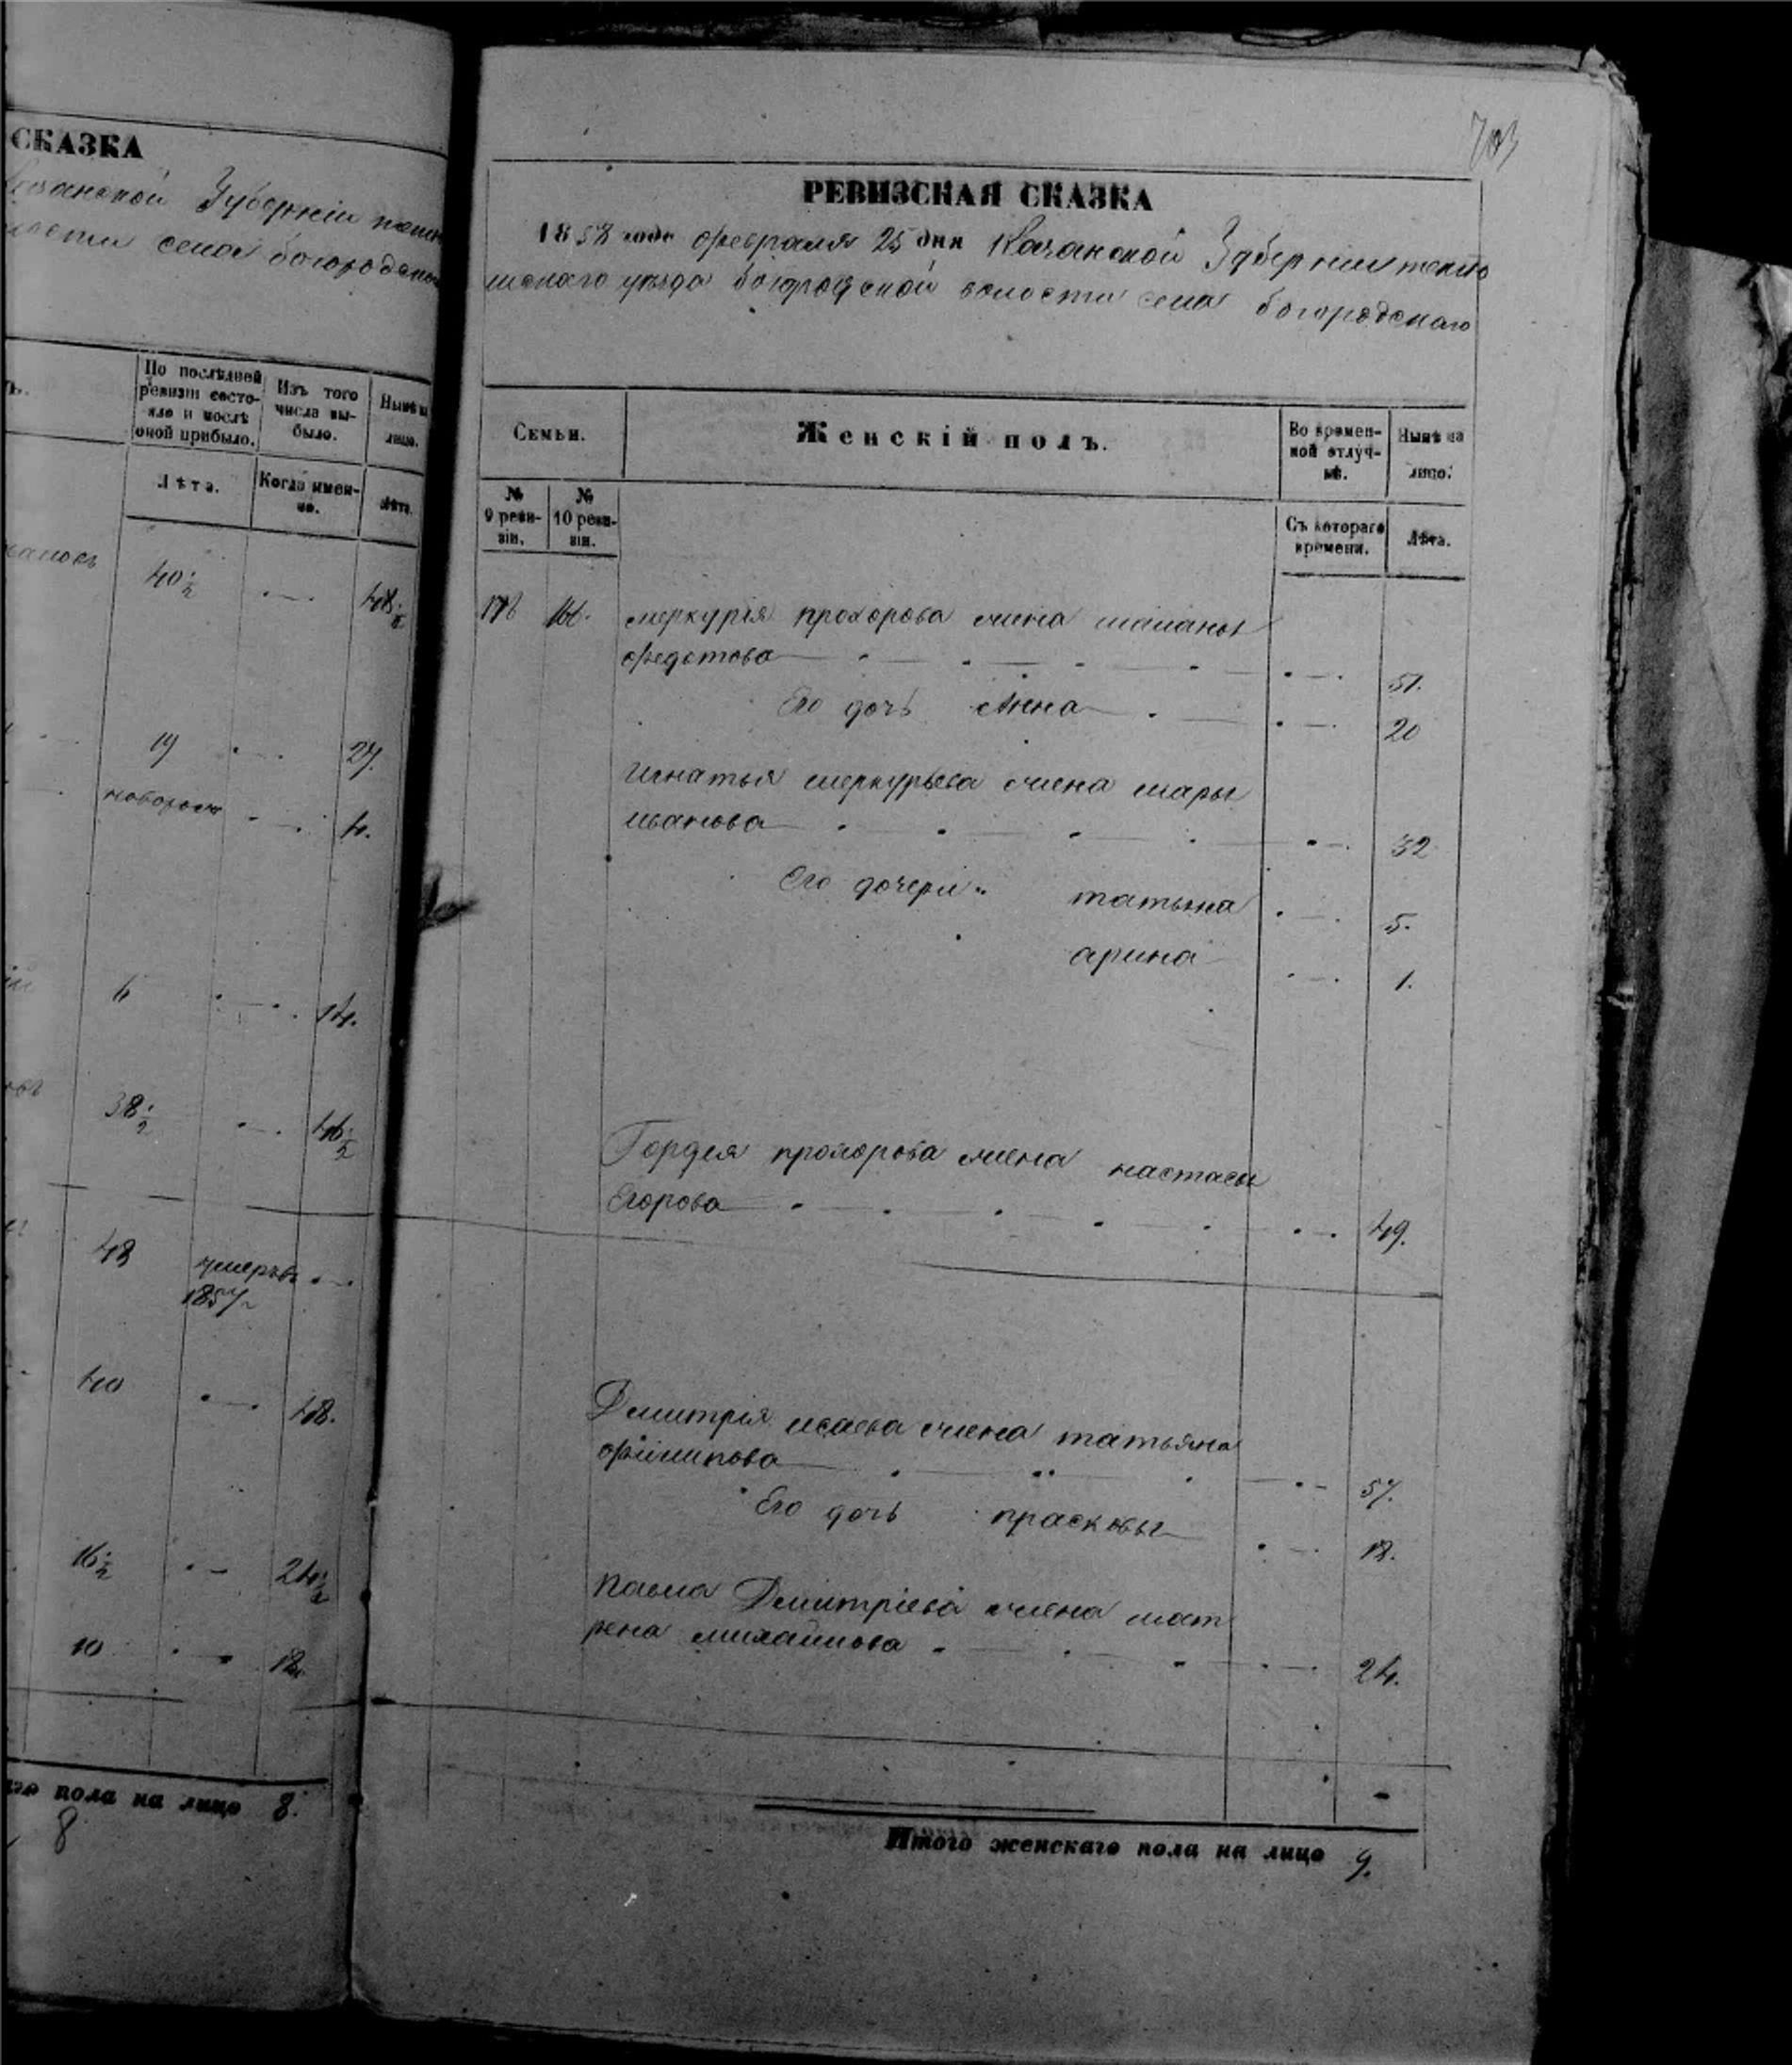 СКАЗКА
Казанской Губернiи
волости села богородска
По послѣдней
ревизiи состо-
яло и послѣ
оной прибыло.
Изъ того
числа вы-
было.
Нынѣ на
лицо.
Лѣта.
Когда имен-
но.
Лѣта.
40 1/2
48 1/2
19
27.
4.
6
14.
38 1/2
46 1/2
48
умеръ
1857
40
48.
16 1/2
24 1/2
10
18
го пола на лицо 8.
8
703
РЕВИЗСКАЯ СКАЗКА
1858 года февраля 25 дня Казанской Губернiи тетю
шскаго уѣзда богородской волости села богородскаго
Семьи.
Женскiй полъ.
Во времен-
ной отлуч-
кѣ.
Нынѣ на
лицо.
№
9 реви-
зiи.
№
10 реви-
зiи.
Съ котораго
времени.
Лѣта.
166. меркурiя прохорова жена
федотова 51.
Его дочь Анна 20
игнатья меркурьева жена марья
иванова 32
Его дочери татьяна 5.
арина 1.
Гордея прохорова жена настасья
Егорова 49.
Дмитрiя исаева жена татьяна
филипова 57.
Его дочь прасковья 18.
павла Дмитрiева жена мат
рена михайлова 24.
Итого женскаго пола на лицо 9.